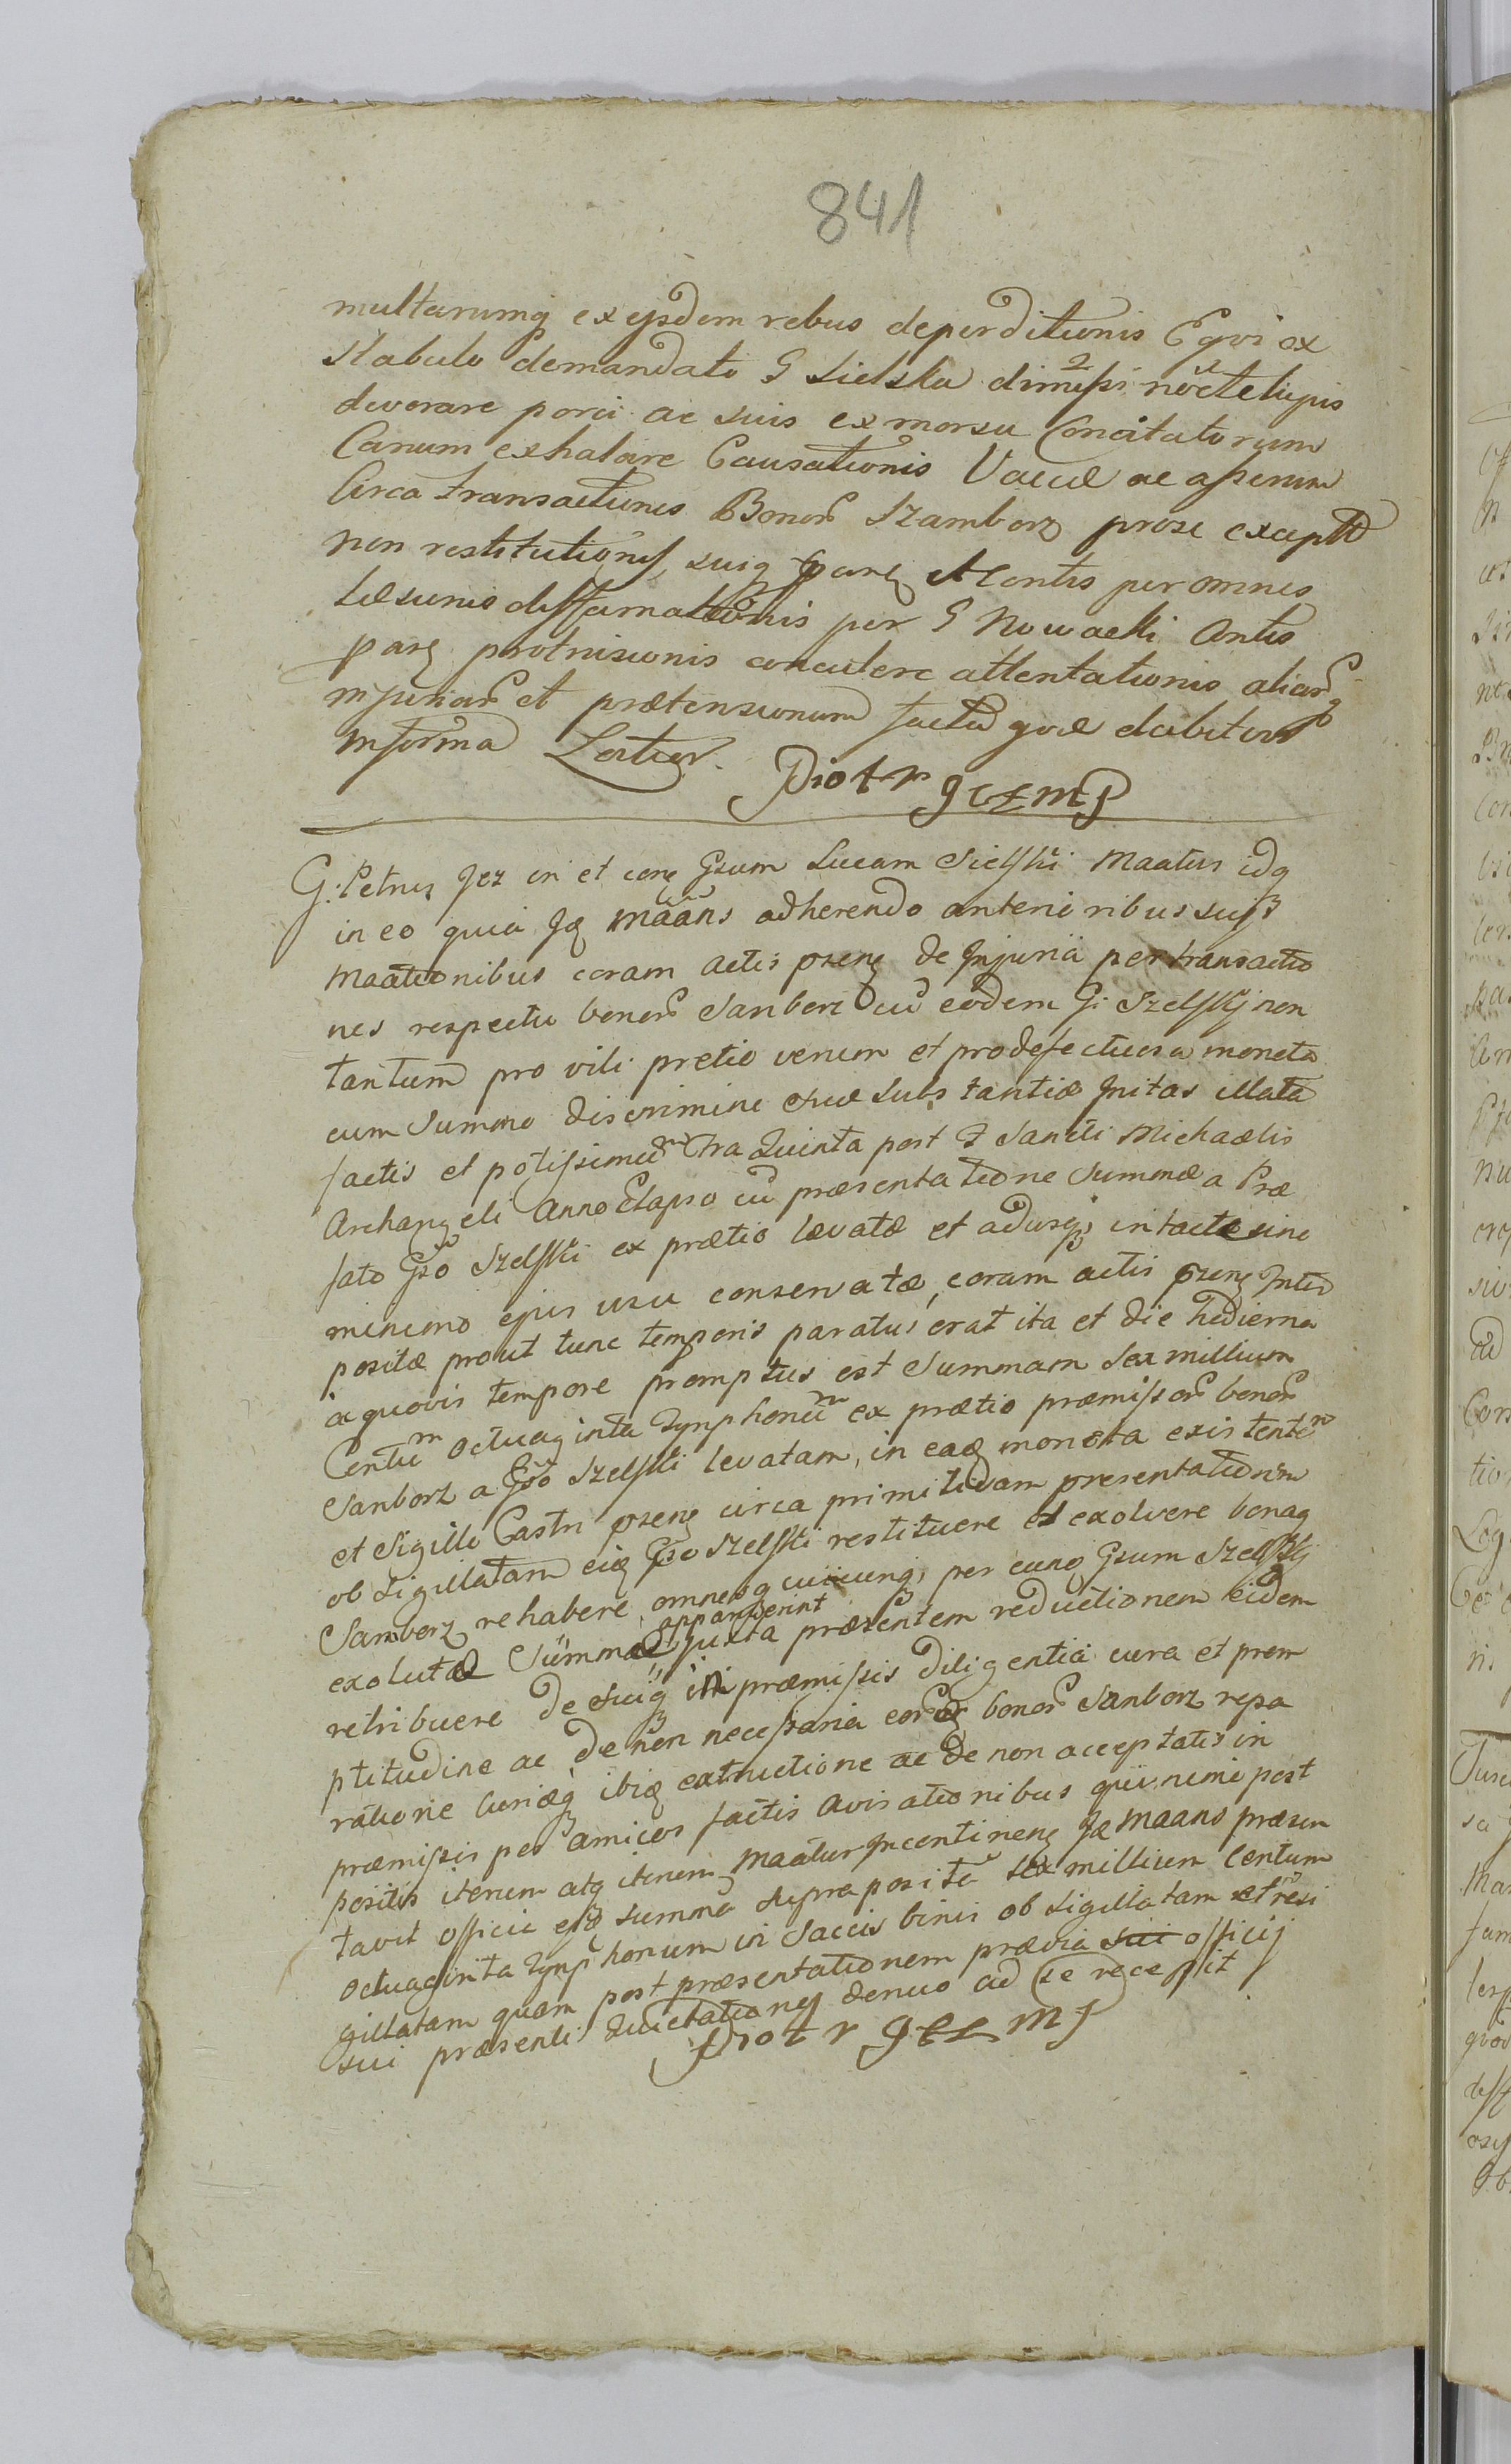 841
multarumq ex ejsdem rebus deperditionis Eqvi ex
Stabulo demandato G Sielska dimissi nocte lupis
devorare porci ac suis ex morsu Concitatorum
Canum exhalare Causationis Vaccæ ac asserum
Circa transactiones Bonor Szamborz pro se except
non restitutionis suiq par Actoratus per omnes
Læsionis diffamationis per G Nowacki Antis
parę protrusionis conculere attentationis aliar
injuriar et prætensionum facta qvæ dabitur
in forma Latior.
Piotr Jez mp
G. Petrus Jez in et conę Gsum Lucam Sielski Maatur idq
in eo quia Ję Maans adherendo anterioribus suis
Maationibus coram actis præsenę de Injuria per transactio
nes respectu bonor Sanborz cu eodem G. Szelskij non
tantum pro vili pretio venum et pro defectuosa moneta
cum Summo discrimine suæ Substantiæ Initas illata
factis et potissimu fra Quinta post F Sancti Michaelis
Archangeli Anno Elapso cu præsentatione Summæ a Præ
fato Gso Szelski ex prætio levatæ et adusq intacte sine
minimo ejus usu conservatæ, coram actis præsenę
positæ prout tunc temporis paratus erat ita et die hodierna
a quovis tempore promptus est Summam Sex millium
Centu Octuaginta Tynphonu ex prætio præmissor bonor
Sanborz a Gso Szelski levatam, in eaę moneta existente
et Sigillo Castri præsenę circa primitivam presentationem
ob Sigillatam eię Gso Szelski restituere et exolvere bonaq
Sanborz rehabere omnesq cuicunq, per eunę Gsum Szelskij
exolutæ Summæ apparuerint juxta præsentem reductionem eidem
retribuere De suiq in præmissis diligentia cura et prom
ptitudine ac de non necessaria eorę bonor Sanborz repa
ratione Curiæq ibię extructione ac de non acceptatis in
præmissis per amicos factis avisationibus
positis iterum atq iterum Maatur Incontinenę Ję Maans præsen
tavit officio summa supra posita sex millium Centum
Octuaginta Tynphonum in Saccis binis ob Sigillatam et resi
gillatam quam post præsentationem prævia sui officij
sui præsenti quietatione denuo ad se recepit
Piotr Jez mp